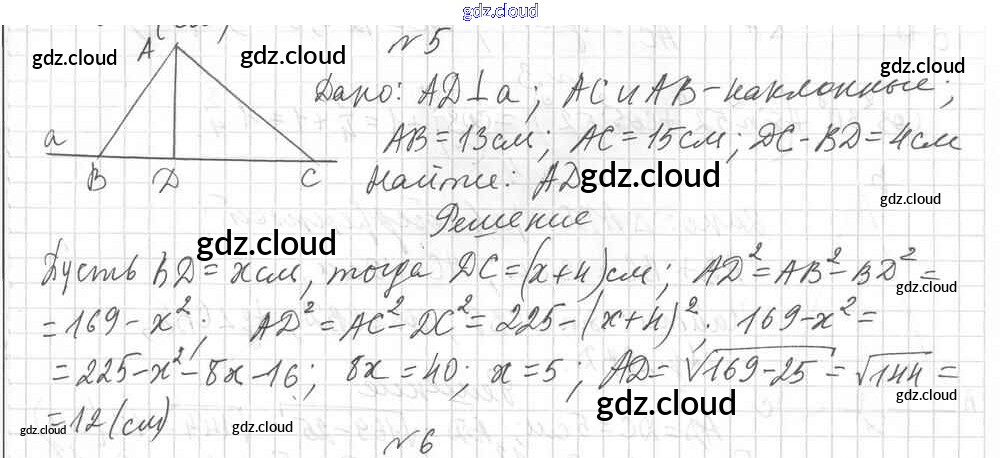 gdz.cloud
№5
A
gdz.cloud gdz.cloud gdz.cloud
Дано: AD⊥a; AC и AB – наклонные;
a
AB = 13 см; AC = 15 см; DC - BD = 4 см
B D C
Найти: AD gdz.cloud
gdz.cloud
Решение
gdz.cloud
Пусть BD = x см, тогда DC = (x+4) см; AD² = AB² - BD² =
gdz.cloud
= 169 - x²; AD² = AC² - DC² = 225 - (x+4)². 169 - x² =
= 225 - x² - 8x - 16; 8x = 40; x = 5; AD = √169-25 = √144 =
gdz.cloud gdz.cloud
= 12 (см)
gdz.cloud gdz.cloud gdz.cloud
№6